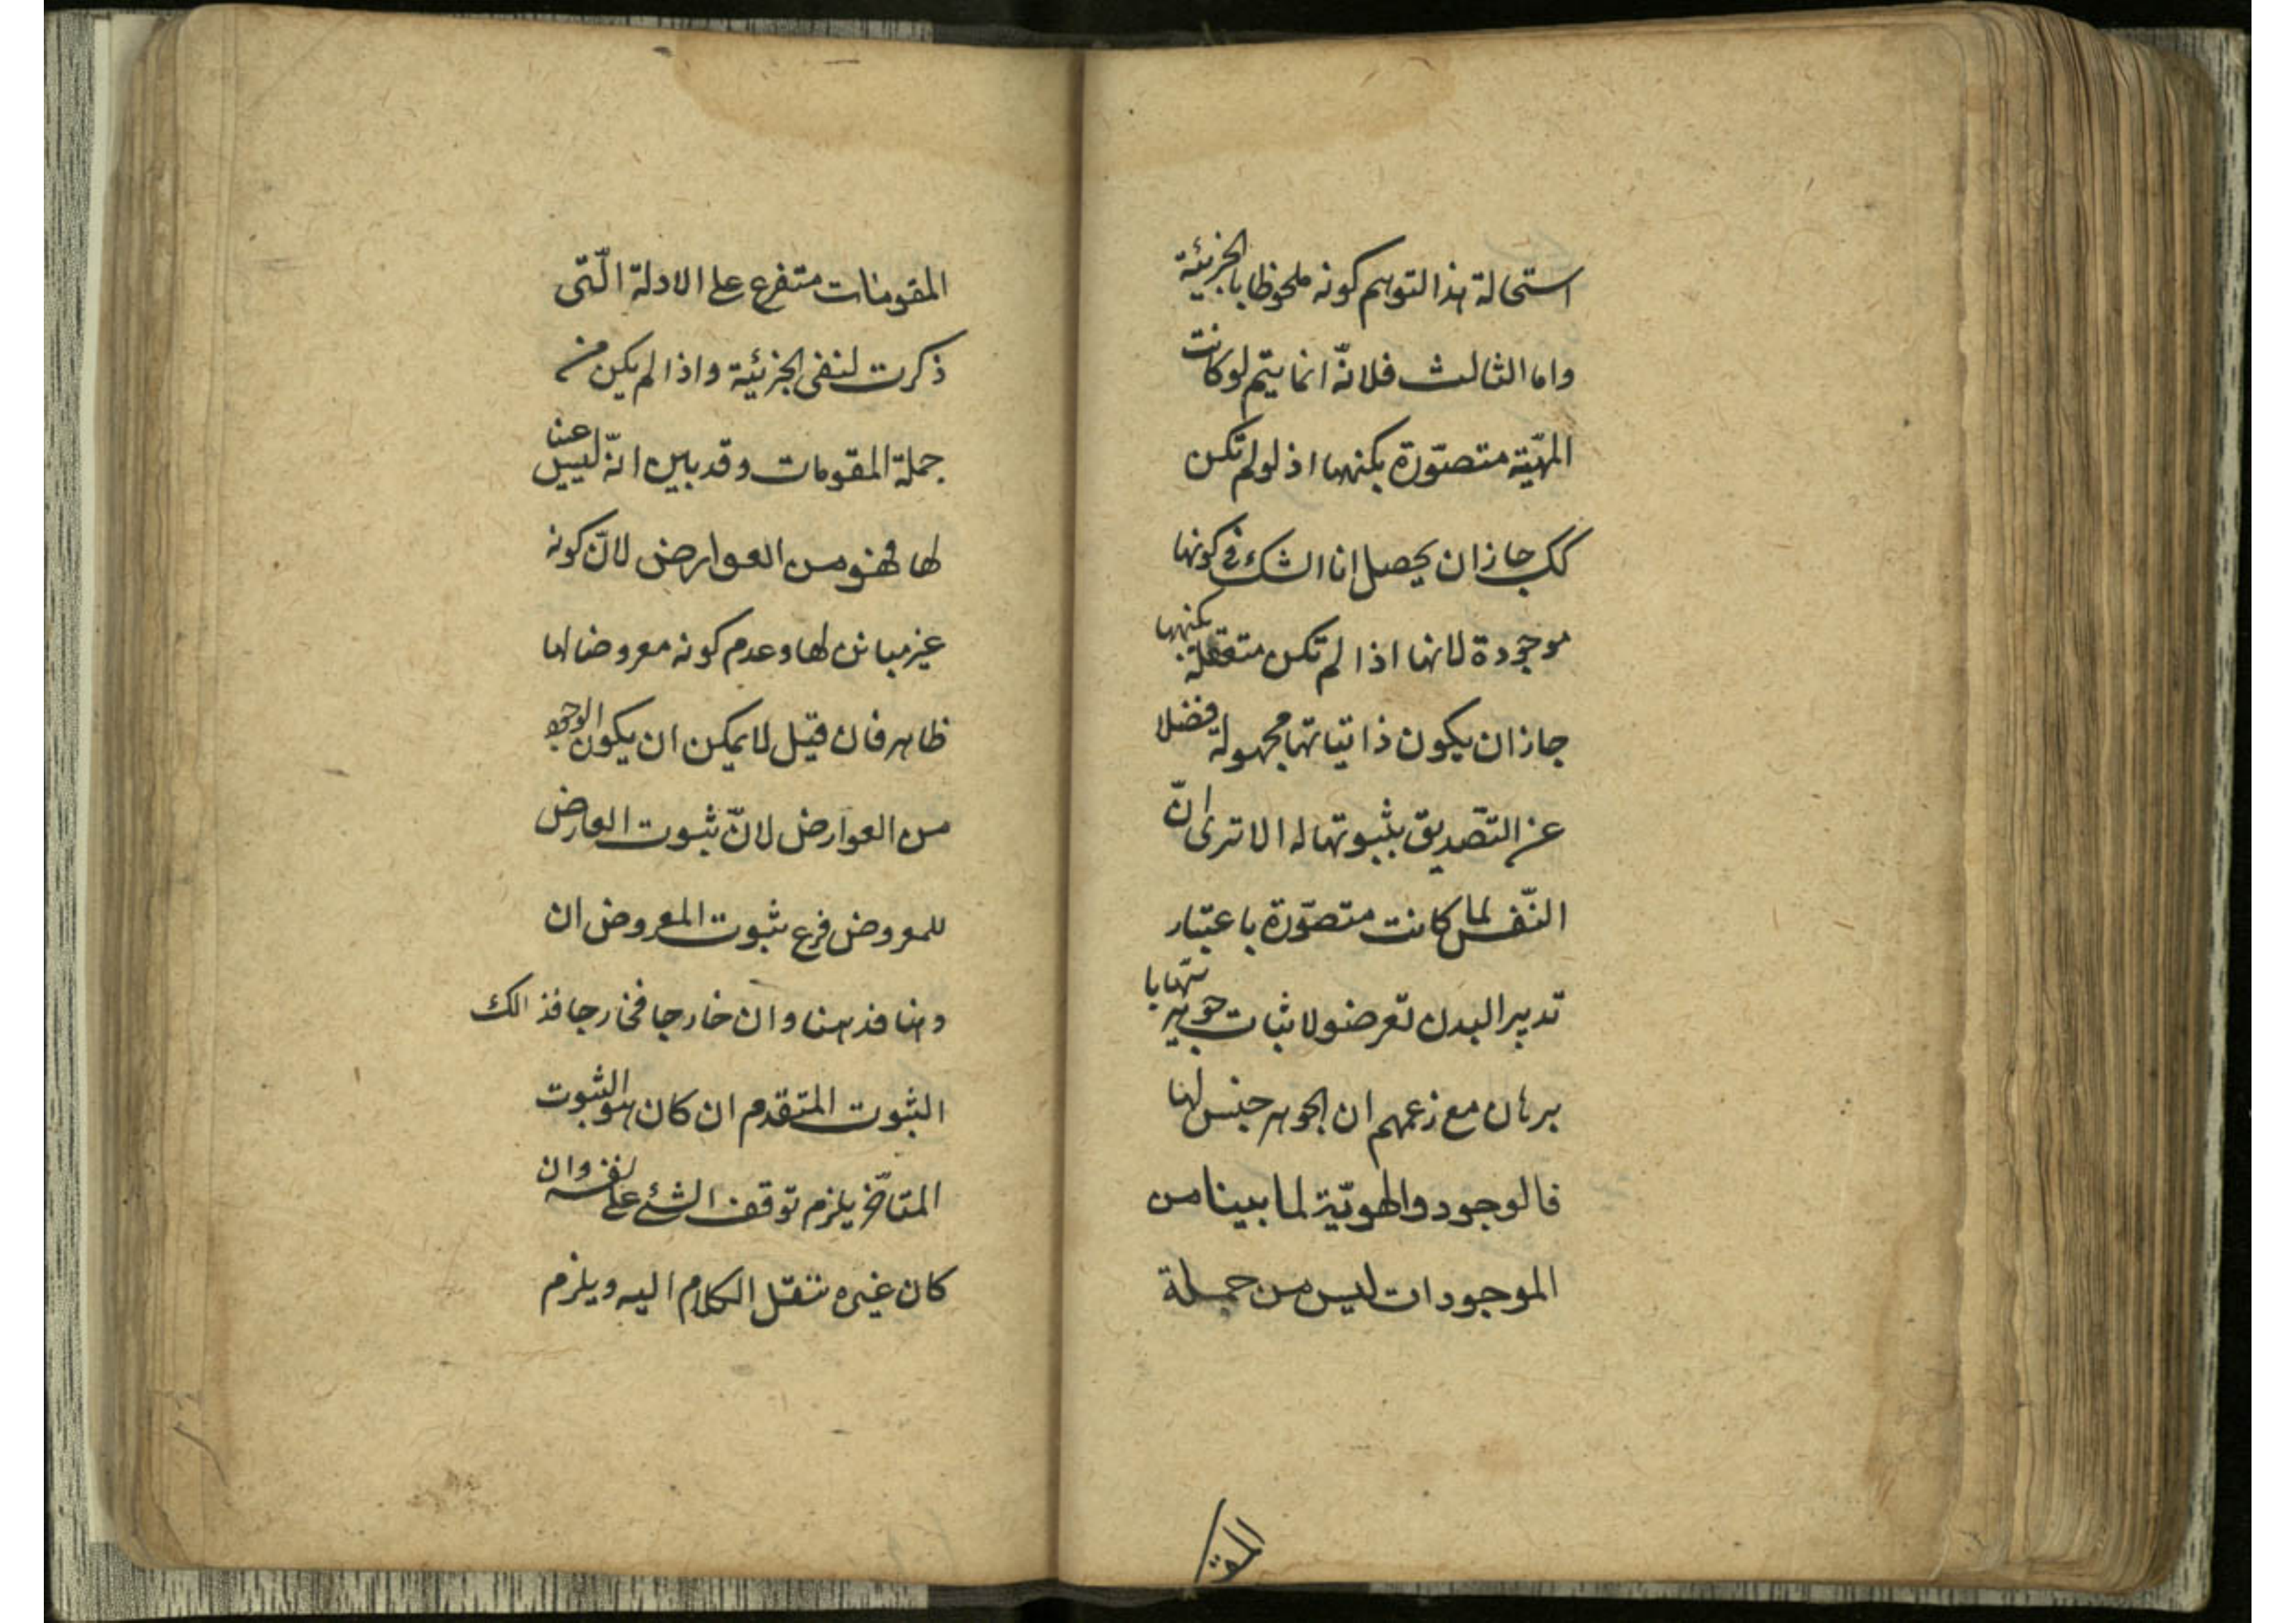 استحالة هذا التوهم كونه ملحوظا بالجزئية
واما الثالث فلانّه انما يتم لو كانت
المهيّة متصوّرة بكنهها اذ لو لم تكن
كك جاز ان يحصل لنا الشك في كونها
موجودة لانها اذا لم تكن متعقلة بكنهها
جاز ان يكون ذاتياتها مجهولة فضلا
عن التصديق بثبوتها له الا ترى انّ
النّفس لما كانت متصوّرة باعتبار
تدبير البدن تعرضوا لاثبات جوهريتها با
برهان مع زعمهم ان الجوهر جنس لها
فالوجود والهويّة لما بينا من
الموجودات ليس من جملة
المقو
المقومات متفرع على الادلة الّتى
ذكرت لنفى الجزئية واذا لم يكن من
جملة المقومات وقد بين انّه ليس عينا
لها فهو من العوارض لانّ كونه
غير مباين لها وعدم كونه معروضا لها
ظاهر فان قيل لا يمكن ان يكون الوجود
من العوارض لانّ ثبوت العارض
للمعروض فرع ثبوت المعروض ان
ذهنا فذهنا وان خارجا فخارجا فذالك
الثبوت المتقدم ان كان هو الثبوت
المتأخر يلزم توقف الشئ على نفسه وان
كان غيره ننقل الكلام اليه ويلزم